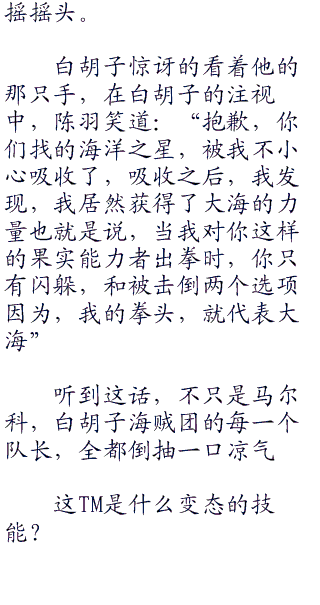 摇摇头。
白胡子惊讶的看着他的
那只手，在白胡子的注视
中，陈羽笑道：“抱歉，你
们找的海洋之星，被我不小
心吸收了，吸收之后，我发
现，我居然获得了大海的力
量也就是说，当我对你这样
的果实能力者出拳时，你只
有闪躲，和被击倒两个选项
因为，我的拳头，就代表大
海”
听到这话，不只是马尔
科，白胡子海贼团的每一个
队长，全都倒抽一口凉气
这TM是什么变态的技
能？